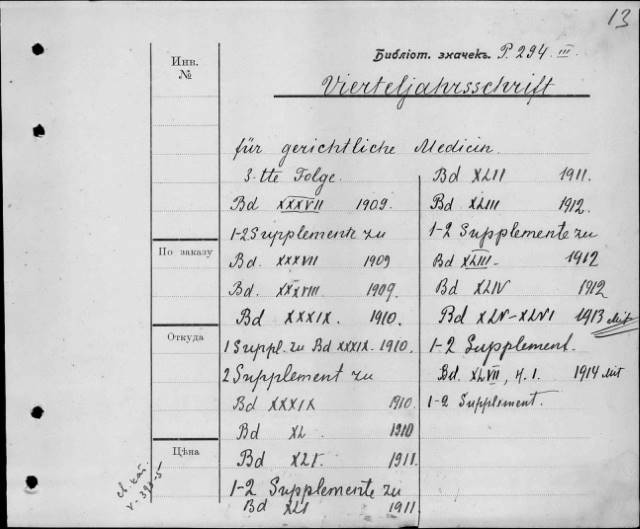 13
Библіот. значекъ P. 294. III
Vierteljahrsschrift
Инв.
№
für gerichtliche Medicin.
3-tte Folge.
Bd XXXVII 1909.
1-2 Supplemente zu
Bd. XXXVII 1909
Bd. XXXVIII 1909.
Bd XXXIX. 1910.
1 Suppl. zu Bd XXXIX. 1910.
2 Supplement zu
Bd XXXIX 1910.
Bd XL 1910
Bd XLI. 1911.
1-2 Supplemente zu
Bd XLI 1911
Bd XLII 1911.
Bd XLIII 1912.
1-2 Supplemente zu
Bd XLIII. 1912
Bd XLIV 1912
Bd XLV-XLVI 1913 Mit
1-2 Supplement.
Bd. XLVII, H. 1. 1914 Mit
1-2 Supplement.
По заказу
Откуда
Цѣна